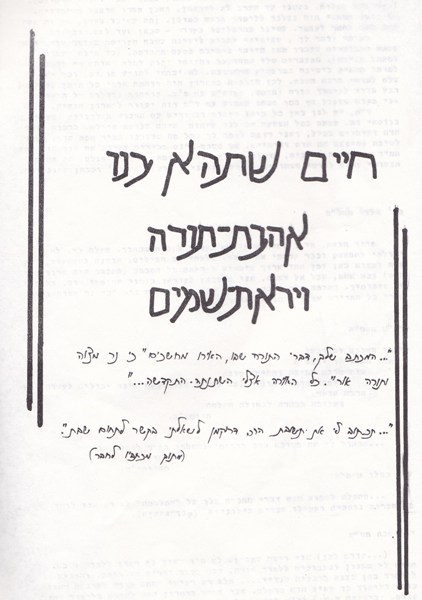 חיים שתהא בנו
אהבת-תורה
ויראת-שמים
"...המכתב שלך, דברי התורה שבו, האירו מחשכים "כי נר מצוה
ותורה אור". כל האוירה אצלי השתנתה-התקדשה..."
"...תכתוב לי את תשובת הרב דרוקמן לשאלתי בקשר לתחום שבת."
(מתוך מכתביו לחבר)